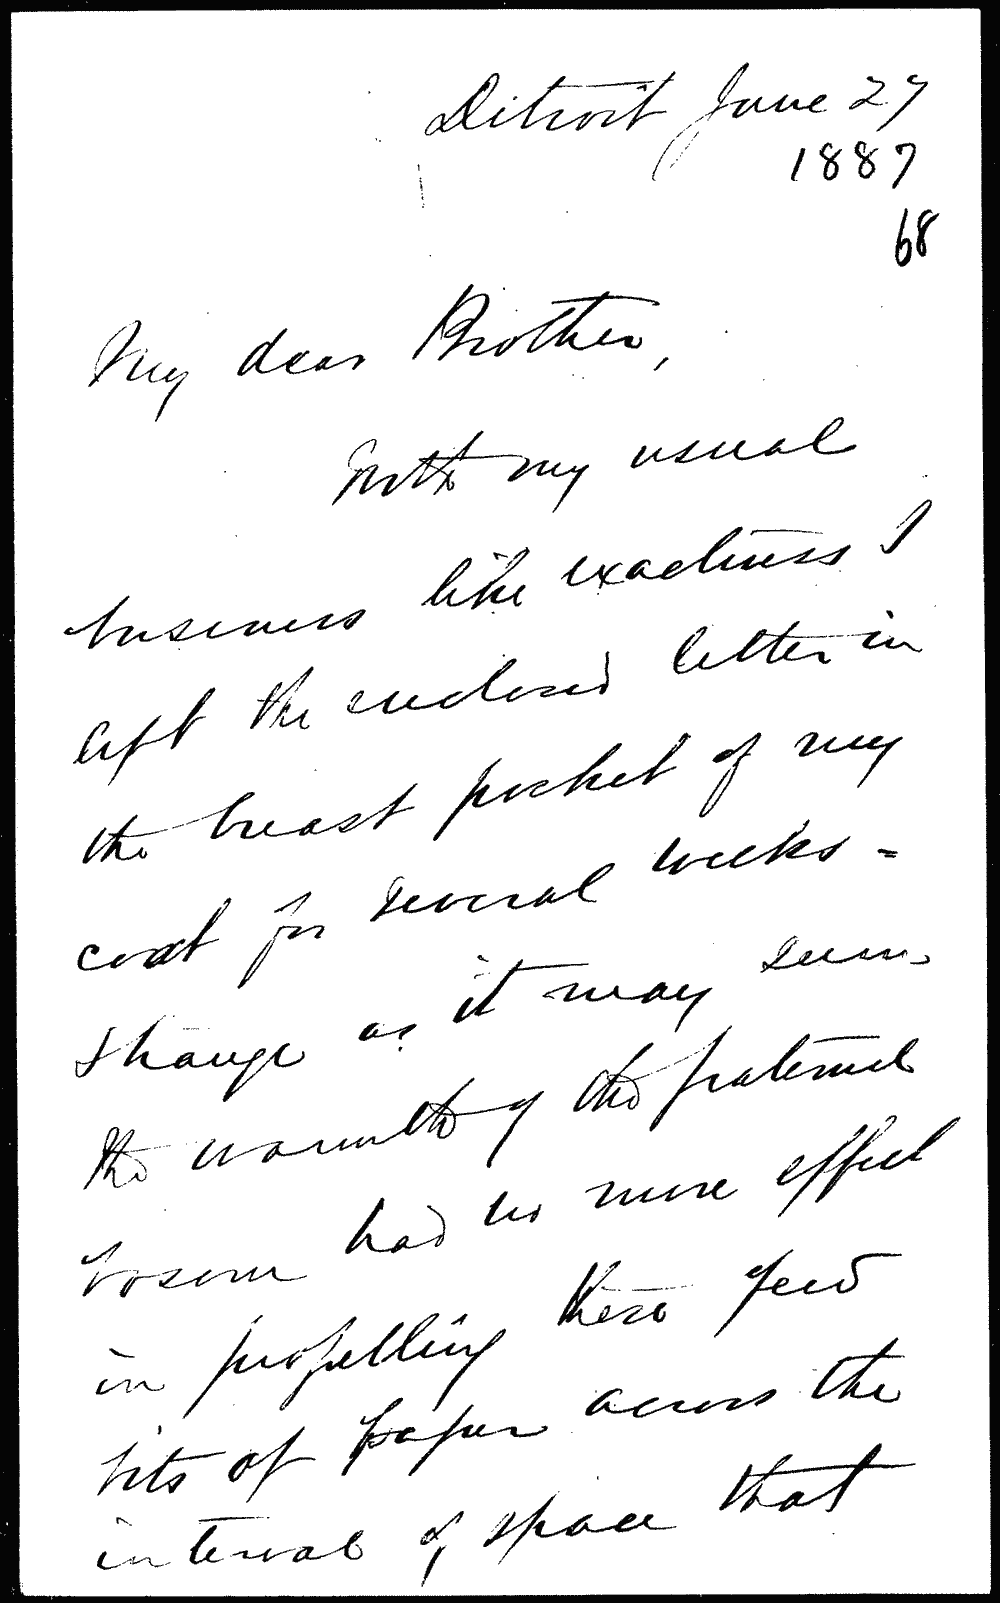 Detroit June 27
1887
68
My dear Brother,
With my usual
business like exactness I
left the enclosed letter in
the breast pocket of my
coat for several weeks -
strange as it may seem
the warmth of the fraternal
bosom had no more effect
in propelling these few
bits of paper across the
interval of space that